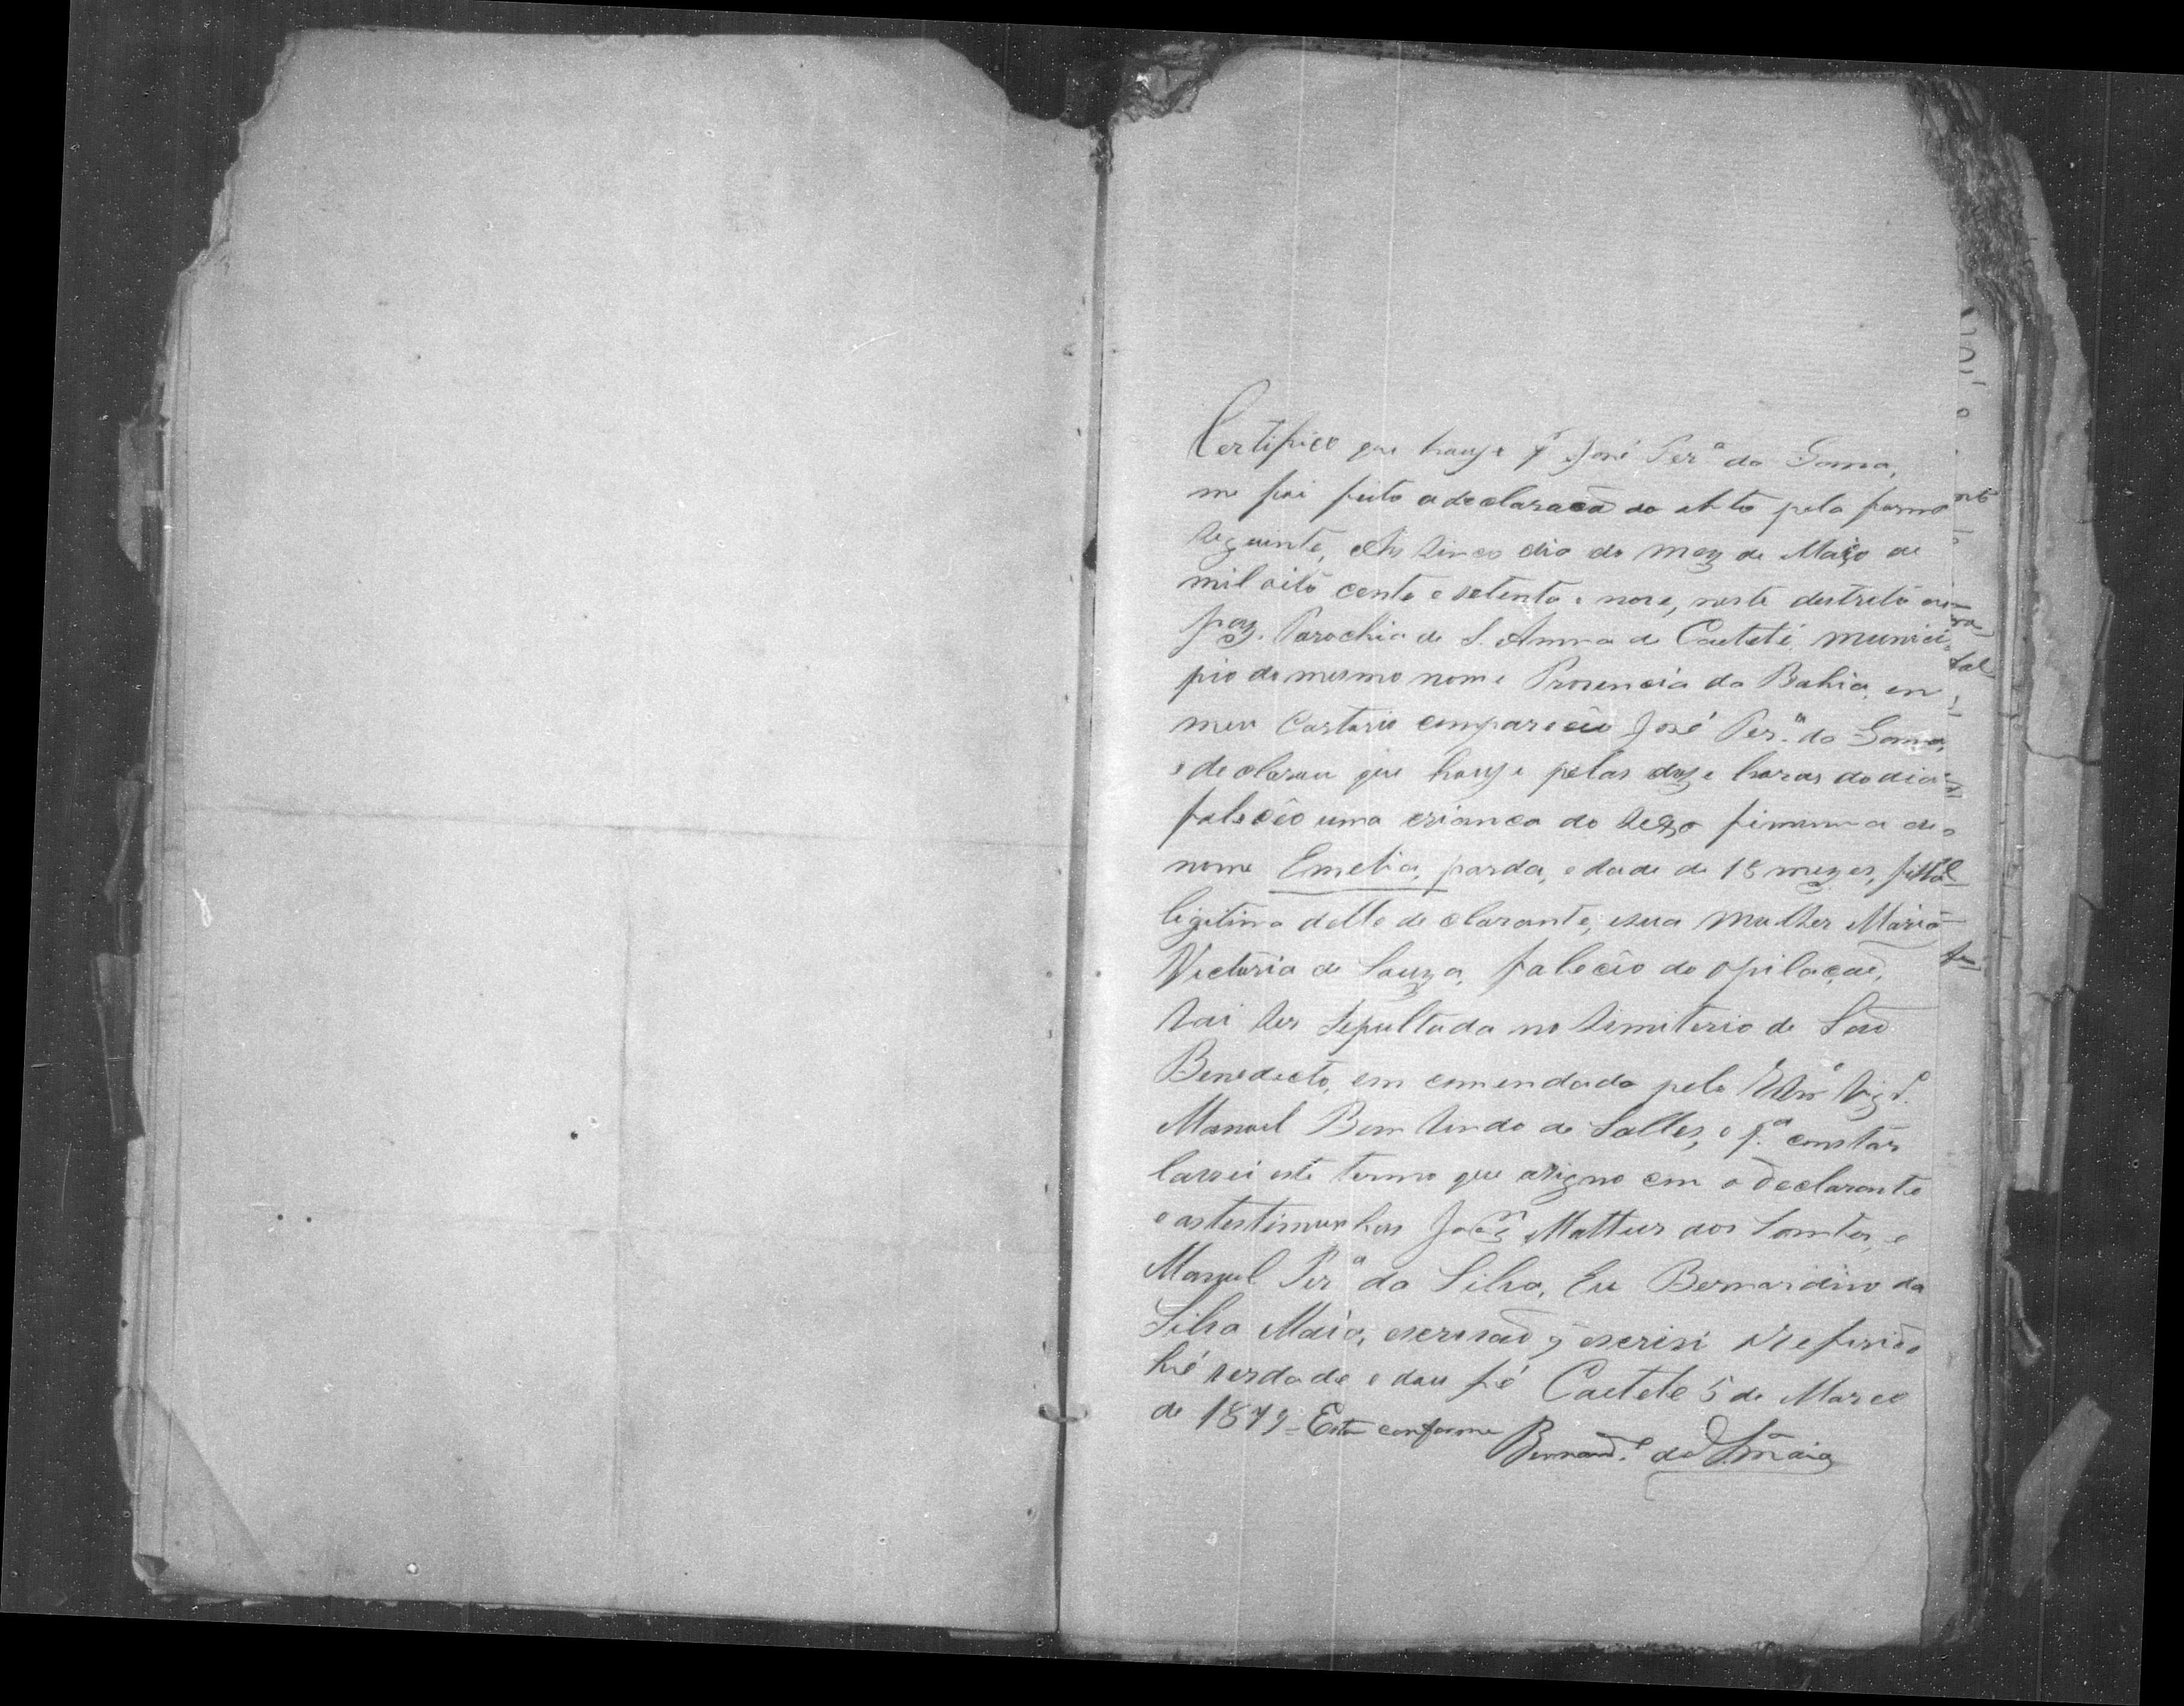 Certifico que houje pr José Perª da Gama,
me foi feito a declaracão do obto pela forma
seguinte, Aos sinco dia do mez de Março de
mil oito cento e setenta e nove, neste destrito de
paz. Parochia de S. Anna de Caeteté, munici
pio do mesmo nome Provencia da Bahia, em
meu Cartorio compareceo José Perª da Gama,
e declarou que houje pelas doze horas do dia
faleceo uma crianca do sexo fiminina de
nome Emelia, parda, edade de 18 mezes, filha
legitima delle declarante, e sua mulher Maria
Victoria de Souza, faleceo de opilação,
vai ser sepultada no simiterio de São
Benedicto, em comendada pelo Vigº
Manoel Bemvindo de Salles, e pª constar
lavrei este termo que asigno com o declarante
e as testimunhas Joaqm Matteus dos Santos, e
Manoel Perª da Silva, Eu Bernardino da
Silva Maia, escrivão q escrivi O referido
hé verdade e dou fé Caeteté 5 de Março
de 1879 - Está conforme
Bernardº da S. Maia